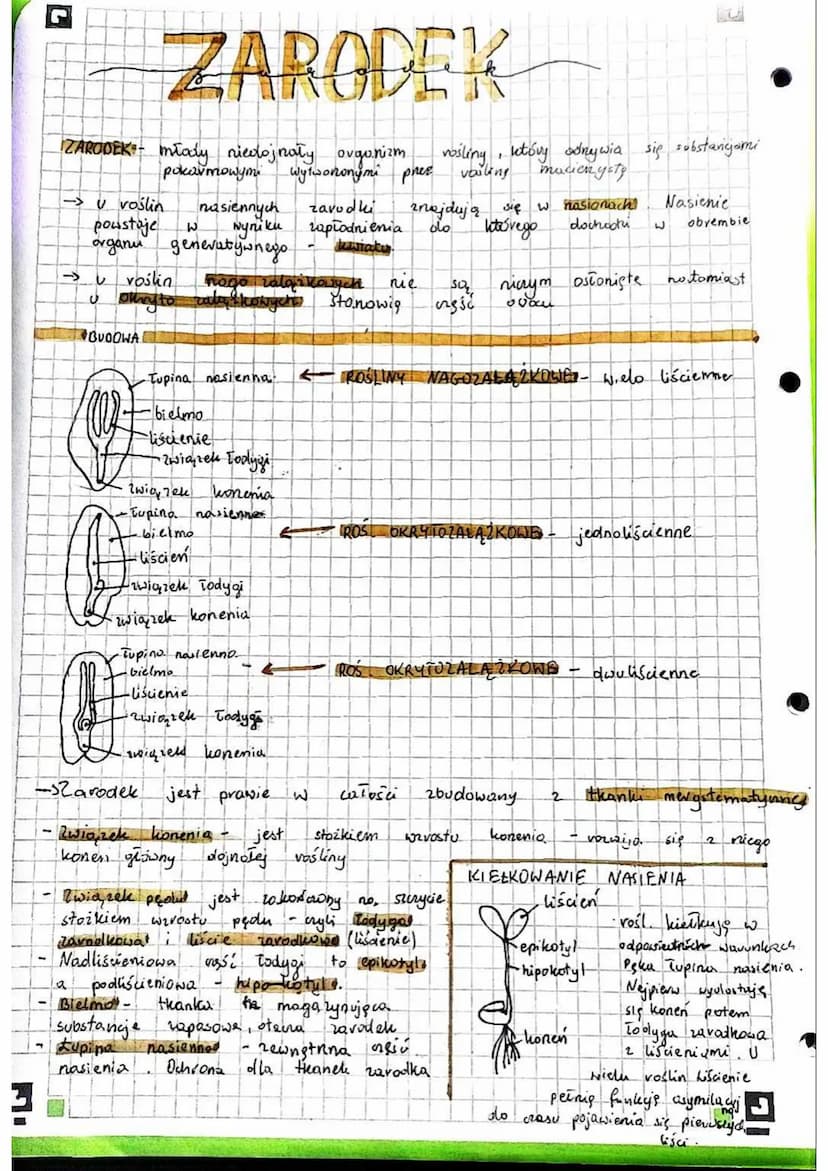 ZARODEK
zarodek
ZARODEK - młody niedojrzały organizm rośliny, który odżywia się substancjami
pokarmowymi wytworzonymi przez roślinę macierzystą
→ u roślin nasiennych zarodki znajdują się w nasionach. Nasienie
powstaje w wyniku zapłodnienia do którego dochodzi w obrembie
organu generatywnego - kwiatu.
→ u roślin nago zalążkowych nie są niczym osłonięte natomiast
u okryto zalążkowych stanowią część owocu
BUDOWA
Łupina nasienna ← ROŚLINY NAGOZALĄŻKOWE - wielo liścienne
bielmo
liścienie
związek łodygi
związek korzenia
Łupina nasienna
bielmo ← ROŚ. OKRYTOZALĄŻKOWE - jednoliścienne
liścień
związek łodygi
związek korzenia
Łupina nasienna
bielmo ← ROŚ. OKRYTOZALĄŻKOWE - dwuliścienne
liścienie
związek łodygi
związek korzenia
→ Zarodek jest prawie w całości zbudowany z tkanki merystematycznej
- Związek korzenia - jest stożkiem wzrostu korzenia - rozwija się z niego
korzeń główny dojrzałej rośliny
- Związek pędu jest zakończony na szczycie
stożkiem wzrostu pędu - czyli łodyga
zarodkowa i liście zarodkowe (liścienie)
- Nadliścieniowa część łodygi to epikotyl,
a podliścieniowa - hipokotyl.
- Bielmo - tkanka magazynująca
substancje zapasowe, otacza zarodek
- Łupina nasienna - zewnętrzna część
nasienia. Ochrona dla tkanek zarodka
KIEŁKOWANIE NASIENIA
liścień
epikotyl
hipokotyl
korzeń
rośl. kiełkują w
odpowiednich warunkach
Pęka łupina nasienia.
Najpierw wydostają
się korzeń potem
łodyga zarodkowa
z liścieniami. U
wielu roślin liścienie
pełnią funkcję asymilacyj
ną
do czasu pojawienia się pierwszych
liści.